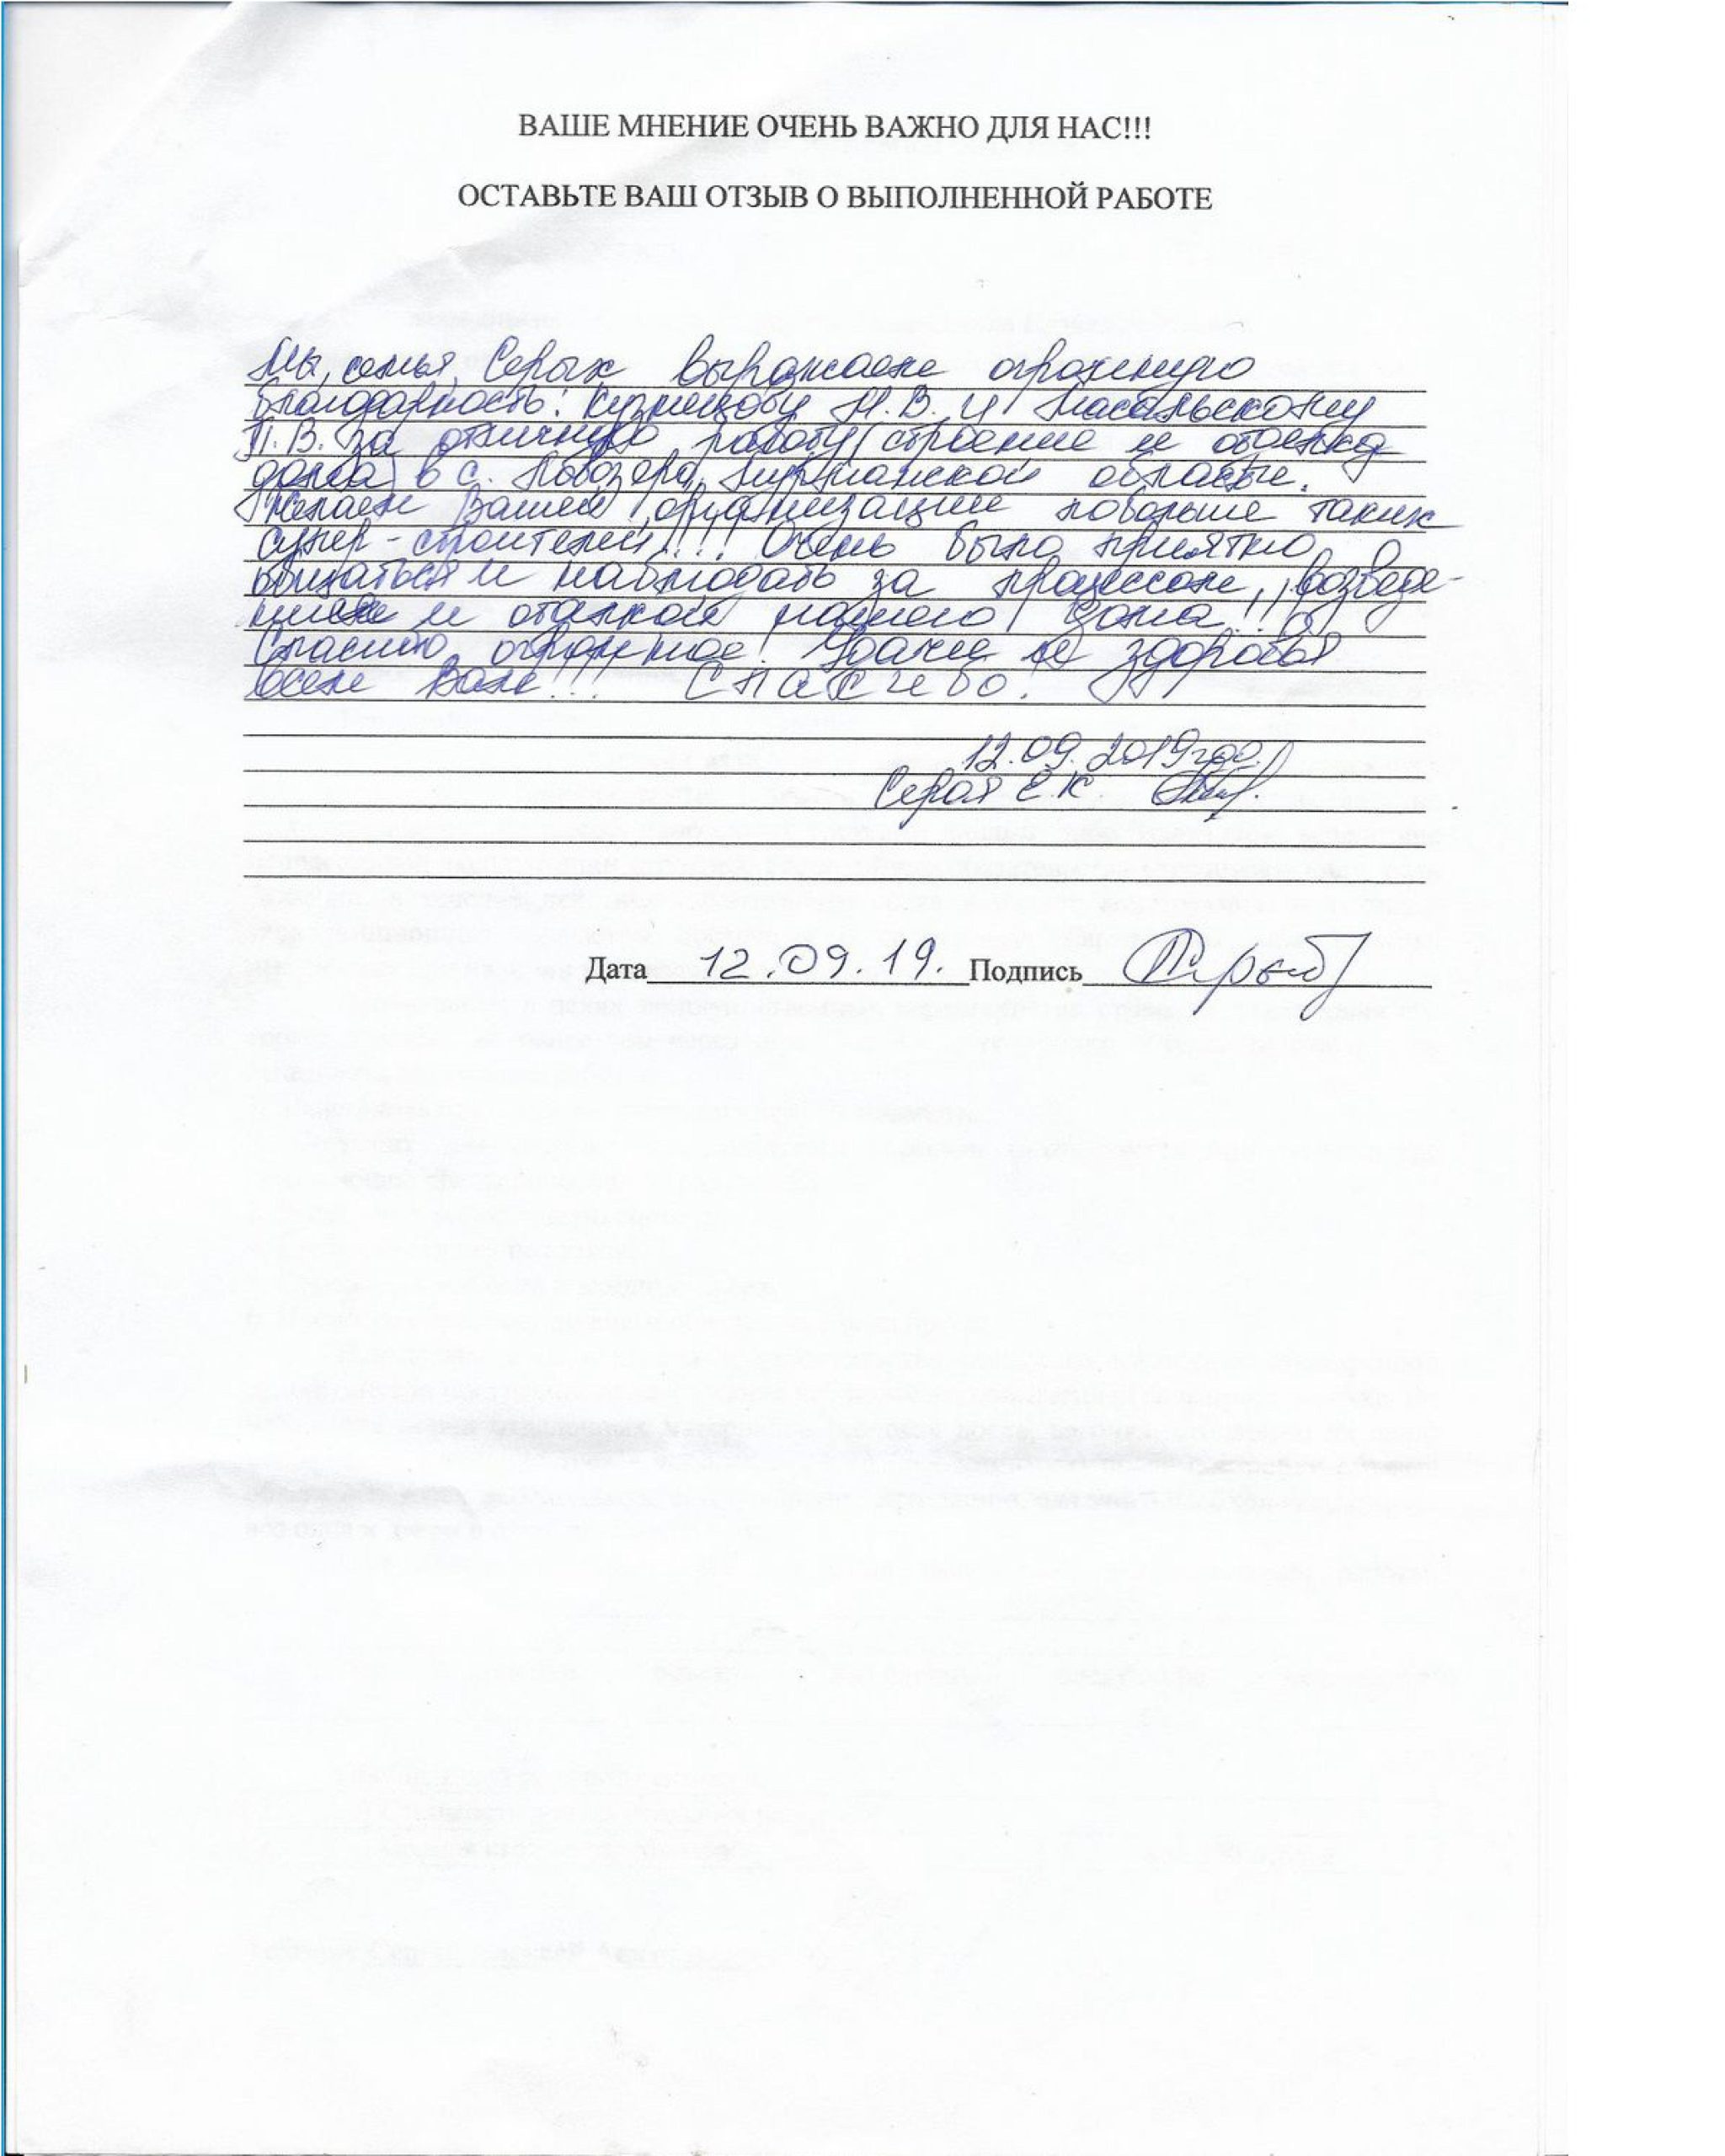 ВАШЕ МНЕНИЕ ОЧЕНЬ ВАЖНО ДЛЯ НАС!!!
ОСТАВЬТЕ ВАШ ОТЗЫВ О ВЫПОЛНЕННОЙ РАБОТЕ
Мы, семья Серых выражаем огромную
благодарность: Кузнецову Н.В. и Масальскому
П.В. за отличную работу (строение и отделка
дома) в с. Ловозеро, Мурманской области.
Желаем Вашей организации побольше таких
супер-строителей!!! Очень было приятно
общаться и наблюдать за процессом, возведе-
нием и отделкой нашего дома!!!
Спасибо огромное! Удачи и здоровья
всем Вам!!! СПАСИБО!
12.09.2019год.
Серая Е.К.
Дата 12.09.19. Подпись